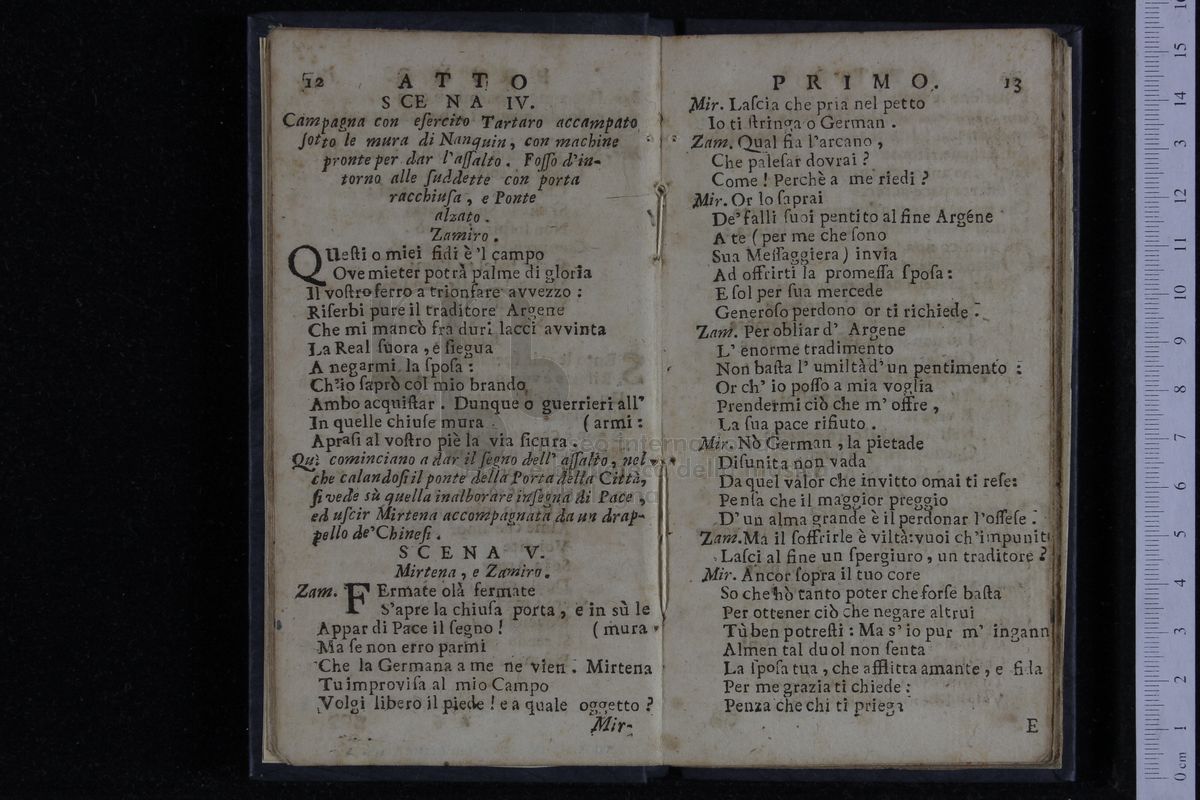 12 ATTO
SCENA IV.
Campagna con eſercito Tartaro accampato
ſotto le mura di Nanquin, con machine
pronte per dar l'aſſalto. Foſſo d'in-
torno alle ſuddette con porta
racchiuſa, e Ponte
alzato.
Zamiro.
QUeſti o miei fidi è 'l campo
Ove mieter potrà palme di gloria
Il voſtro ferro a trionfare avvezzo:
Riſerbi pure il traditore Argene
Che mi mancò fra duri lacci avvinta
La Real ſuora, e ſiegua
A negarmi la ſpoſa:
Ch'io ſaprò col mio brando
Ambo acquiſtar. Dunque o guerrieri all'
In quelle chiuſe mura (armi:
Apraſi al voſtro piè la via ſicura.
Quì cominciano a dar il ſegno dell' aſſalto, nel
che calandoſi il ponte della Porta della Città,
ſi vede sù quella inalborare inſegna di Pace,
ed uſcir Mirtena accompagnata da un drap-
pello de' Chineſi.
SCENA V.
Mirtena, e Zamiro.
Zam. FErmate olà fermate
S'apre la chiuſa porta, e in sù le
Appar di Pace il ſegno! (mura
Ma ſe non erro parmi
Che la Germana a me ne vien. Mirtena
Tu improviſa al mio Campo
Volgi libero il piede! e a quale oggetto?
Mir-
PRIMO. 13
Mir. Laſcia che pria nel petto
Io ti ſtringa o German.
Zam. Qual fia l'arcano,
Che paleſar dovrai?
Come! Perchè a me riedi?
Mir. Or lo ſaprai
De' falli ſuoi pentito al fine Argéne
A te (per me che ſono
Sua Meſſaggiera) invia
Ad offrirti la promeſſa ſpoſa:
E ſol per ſua mercede
Generoſo perdono or ti richiede.
Zam. Per obliar d' Argene
L' enorme tradimento
Non baſta l' umiltà d' un pentimento:
Or ch' io poſſo a mia voglia
Prendermi ciò che m' offre,
La ſua pace rifiuto.
Mir. Nò German, la pietade
Diſunita non vada
Da quel valor che invitto omai ti reſe:
Penſa che il maggior preggio
D' un alma grande è il perdonar l'offeſe.
Zam. Ma il ſoffrirle è viltà: vuoi ch'impunit
Laſci al fine un ſpergiuro, un traditore?
Mir. Ancor ſopra il tuo core
So che hò tanto poter che forſe baſta
Per ottener ciò che negare altrui
Tù ben potreſti: Ma s' io pur m' ingann
Almen tal duol non ſenta
La ſpoſa tua, che afflitta amante, e fida
Per me grazia ti chiede:
Penza che chi ti priega
E